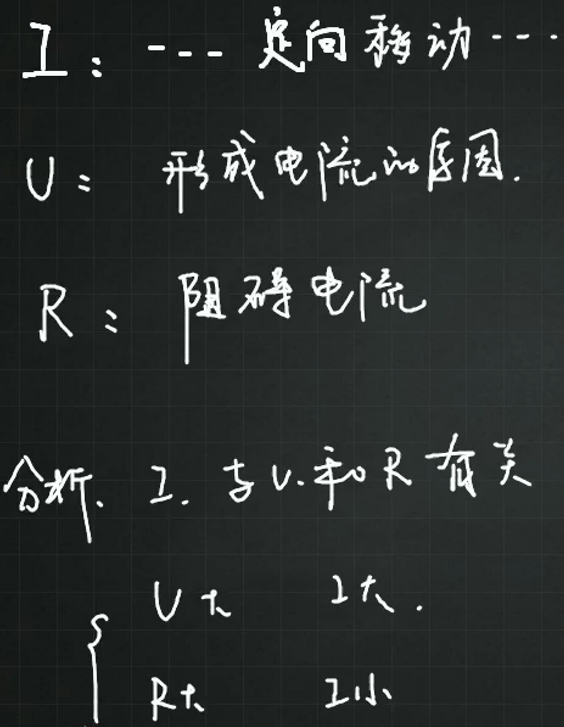 I: --- 定向移动 ---
U: 形成电流的原因.
R: 阻碍电流
分析. I. 与U.和R有关
U大 I大.
R大 I小